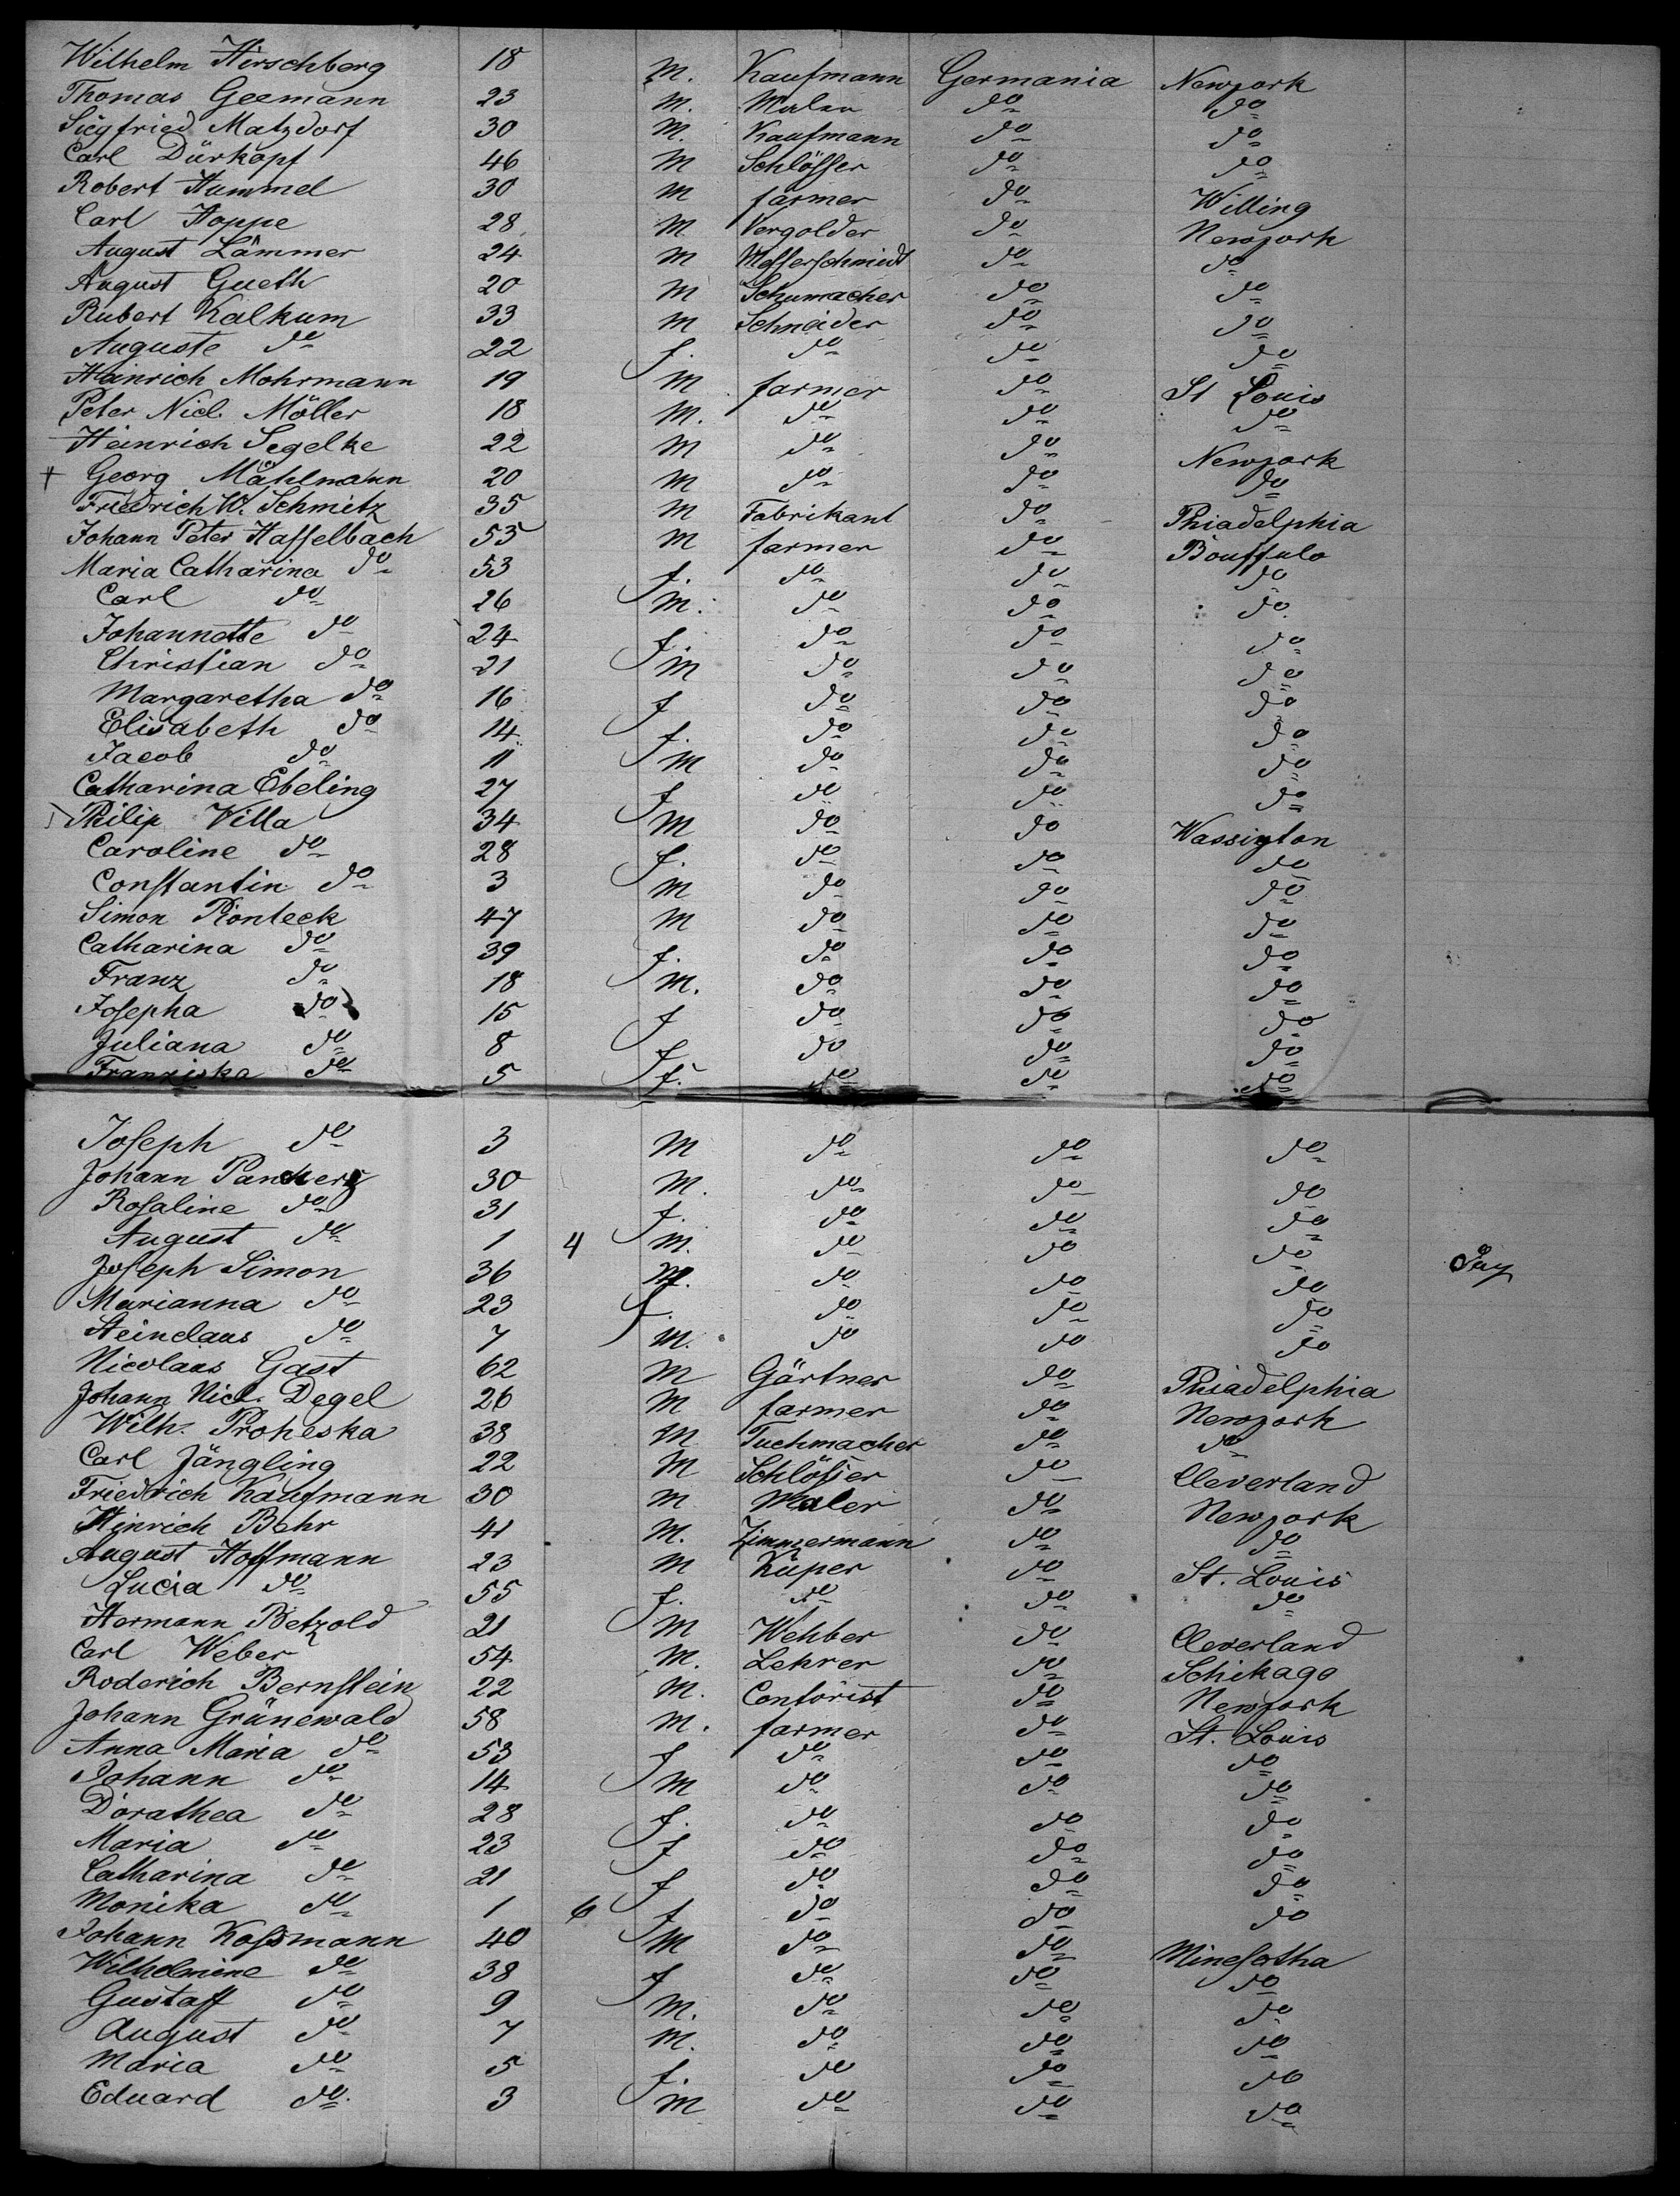 Wilhelm Hirschberg 18 M. Kaufmann Germania Newyork
Thomas Geemann 23 M. Maler do do
Siegfried Matzdorf 30 M. Kaufmann do do
Carl Dürkopf 46 M Schlösser do do
Robert Hummel 30 M farmer do Willing
Carl Hoppe 28 M Vergolder do Newyork
August Lämmer 24 M Messerschmidt do do
August Gueth 20 M Schumacher do do
Rubert Kalkum 33 M Schneider do do
Auguste do 22 f. do do do
Heinrich Mohrmann 19 M farmer do St Louis
Peter Nicl. Möller 18 M. do do do
Heinrich Segelke 22 M do do Newyork
+ Georg Mählmann 20 M do do do
Friedrich W. Schmitz 35 M Fabrikant do Phiadelphia
Johann Peter Hasselbach 53 M farmer do Bouffulo
Maria Catharina do 53 f. do do do
Carl do 26 M. do do do
Johannette do 24 f. do do do
Christian do 21 M do do do
Margaretha do 16 f do do do
Elisabeth do 14 f. do do do
Jacob do 11 M do do do
Catharina Ebeling 27 f do do do
Philip Villa 34 M do do Wassington
Caroline do 28 f. do do do
Constantin do 3 M do do do
Simon Pionteck 47 M do do do
Catharina do 39 f. do do do
Franz do 18 M. do do do
Josepha do 15 f do do do
Juliana do 8 f do do do
Franziska do 5 f. do do do
Joseph do 3 M do do do
Johann 30 M. do do do
Rosaline do 31 f. do do do
August do 1 4 M. do do do
Joseph Simon 36 M. do do do
Marianna do 23 f. do do do
Heinclaus do 7 M. do do do
Nicolaus Gast 62 M Gärtner do Phiadelphia
Johann Nicl. Degel 26 M farmer do Newyork
Wilh. Proheska 38 M Tuchmacher do do
Carl Jängling 22 M Schlösser do Cleverland
Friedrich Kaufmann 30 M Maler do Newyork
Hinrich Behr 41 M. Zimmermann do do
August Hoffmann 23 M Küper do St. Louis
Lucia do 55 f. do do do
Hermann Betzold 21 M Wehber do Cleverland
Carl Weber 54 M. Lehrer do Schikago
Roderich Bernstein 22 M. Contorist do Newyork
Johann Grünewald 58 M. farmer do St. Louis
Anna Maria do 53 f do do do
Johann do 14 M do do do
Dorathea do 28 f. do do do
Maria do 23 f do do do
Catharina do 21 f do do do
Monika do 1 6 f do do do
Johann Kossmann 40 M do do Minesotha
Wilhelmine do 38 f do do do
Gustaff do 9 M. do do do
August do 7 M. do do do
Maria do 5 f. do do do
Eduard do 3 M do do do